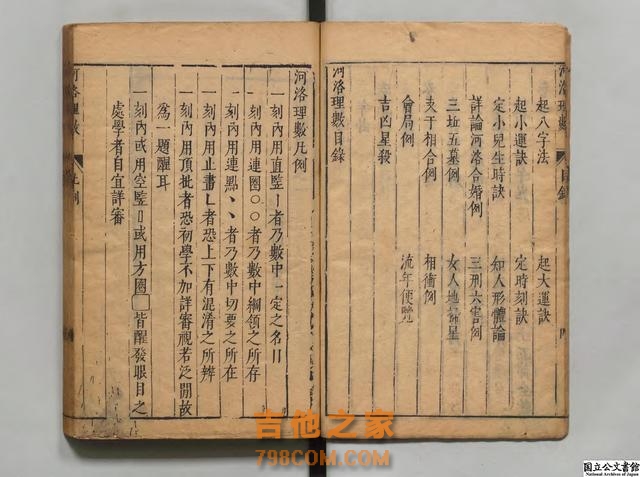 河洛理數 目錄
起八字法 起大運訣
起小運訣 定時刻訣
定小兒生時訣 知人形體論
詳論河洛合婚例 三刑六害例
三坵五墓例 女人地掃星
支干相合例 相衝例
會局例 流年便覽
吉凶星殺
河洛理數目錄
河洛理數凡例
一刻內用直豎丨者乃數中一定之名目
一刻內用連圈○○者乃數中綱領之所存
一刻內用連點丶丶者乃數中切要之所在
一刻內用止畫乚者恐上下有混淆之所辨
一刻內用頂批者恐初學不加詳審視若泛閒故
爲一題醒耳
一刻內或用空豎 或用方圈□皆醒發眼目之
處學者自宜詳審
河洛理數 凡例
吉他之家
798COM.COM
国立公文書館
National Archives of Japan